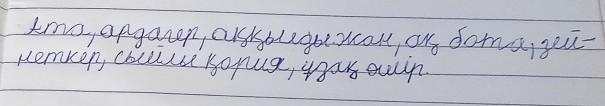 ята, ардагер, аққыыдыжан, ақ бата, зей-
неткер, сыйлы қария, ұзақ өмір.